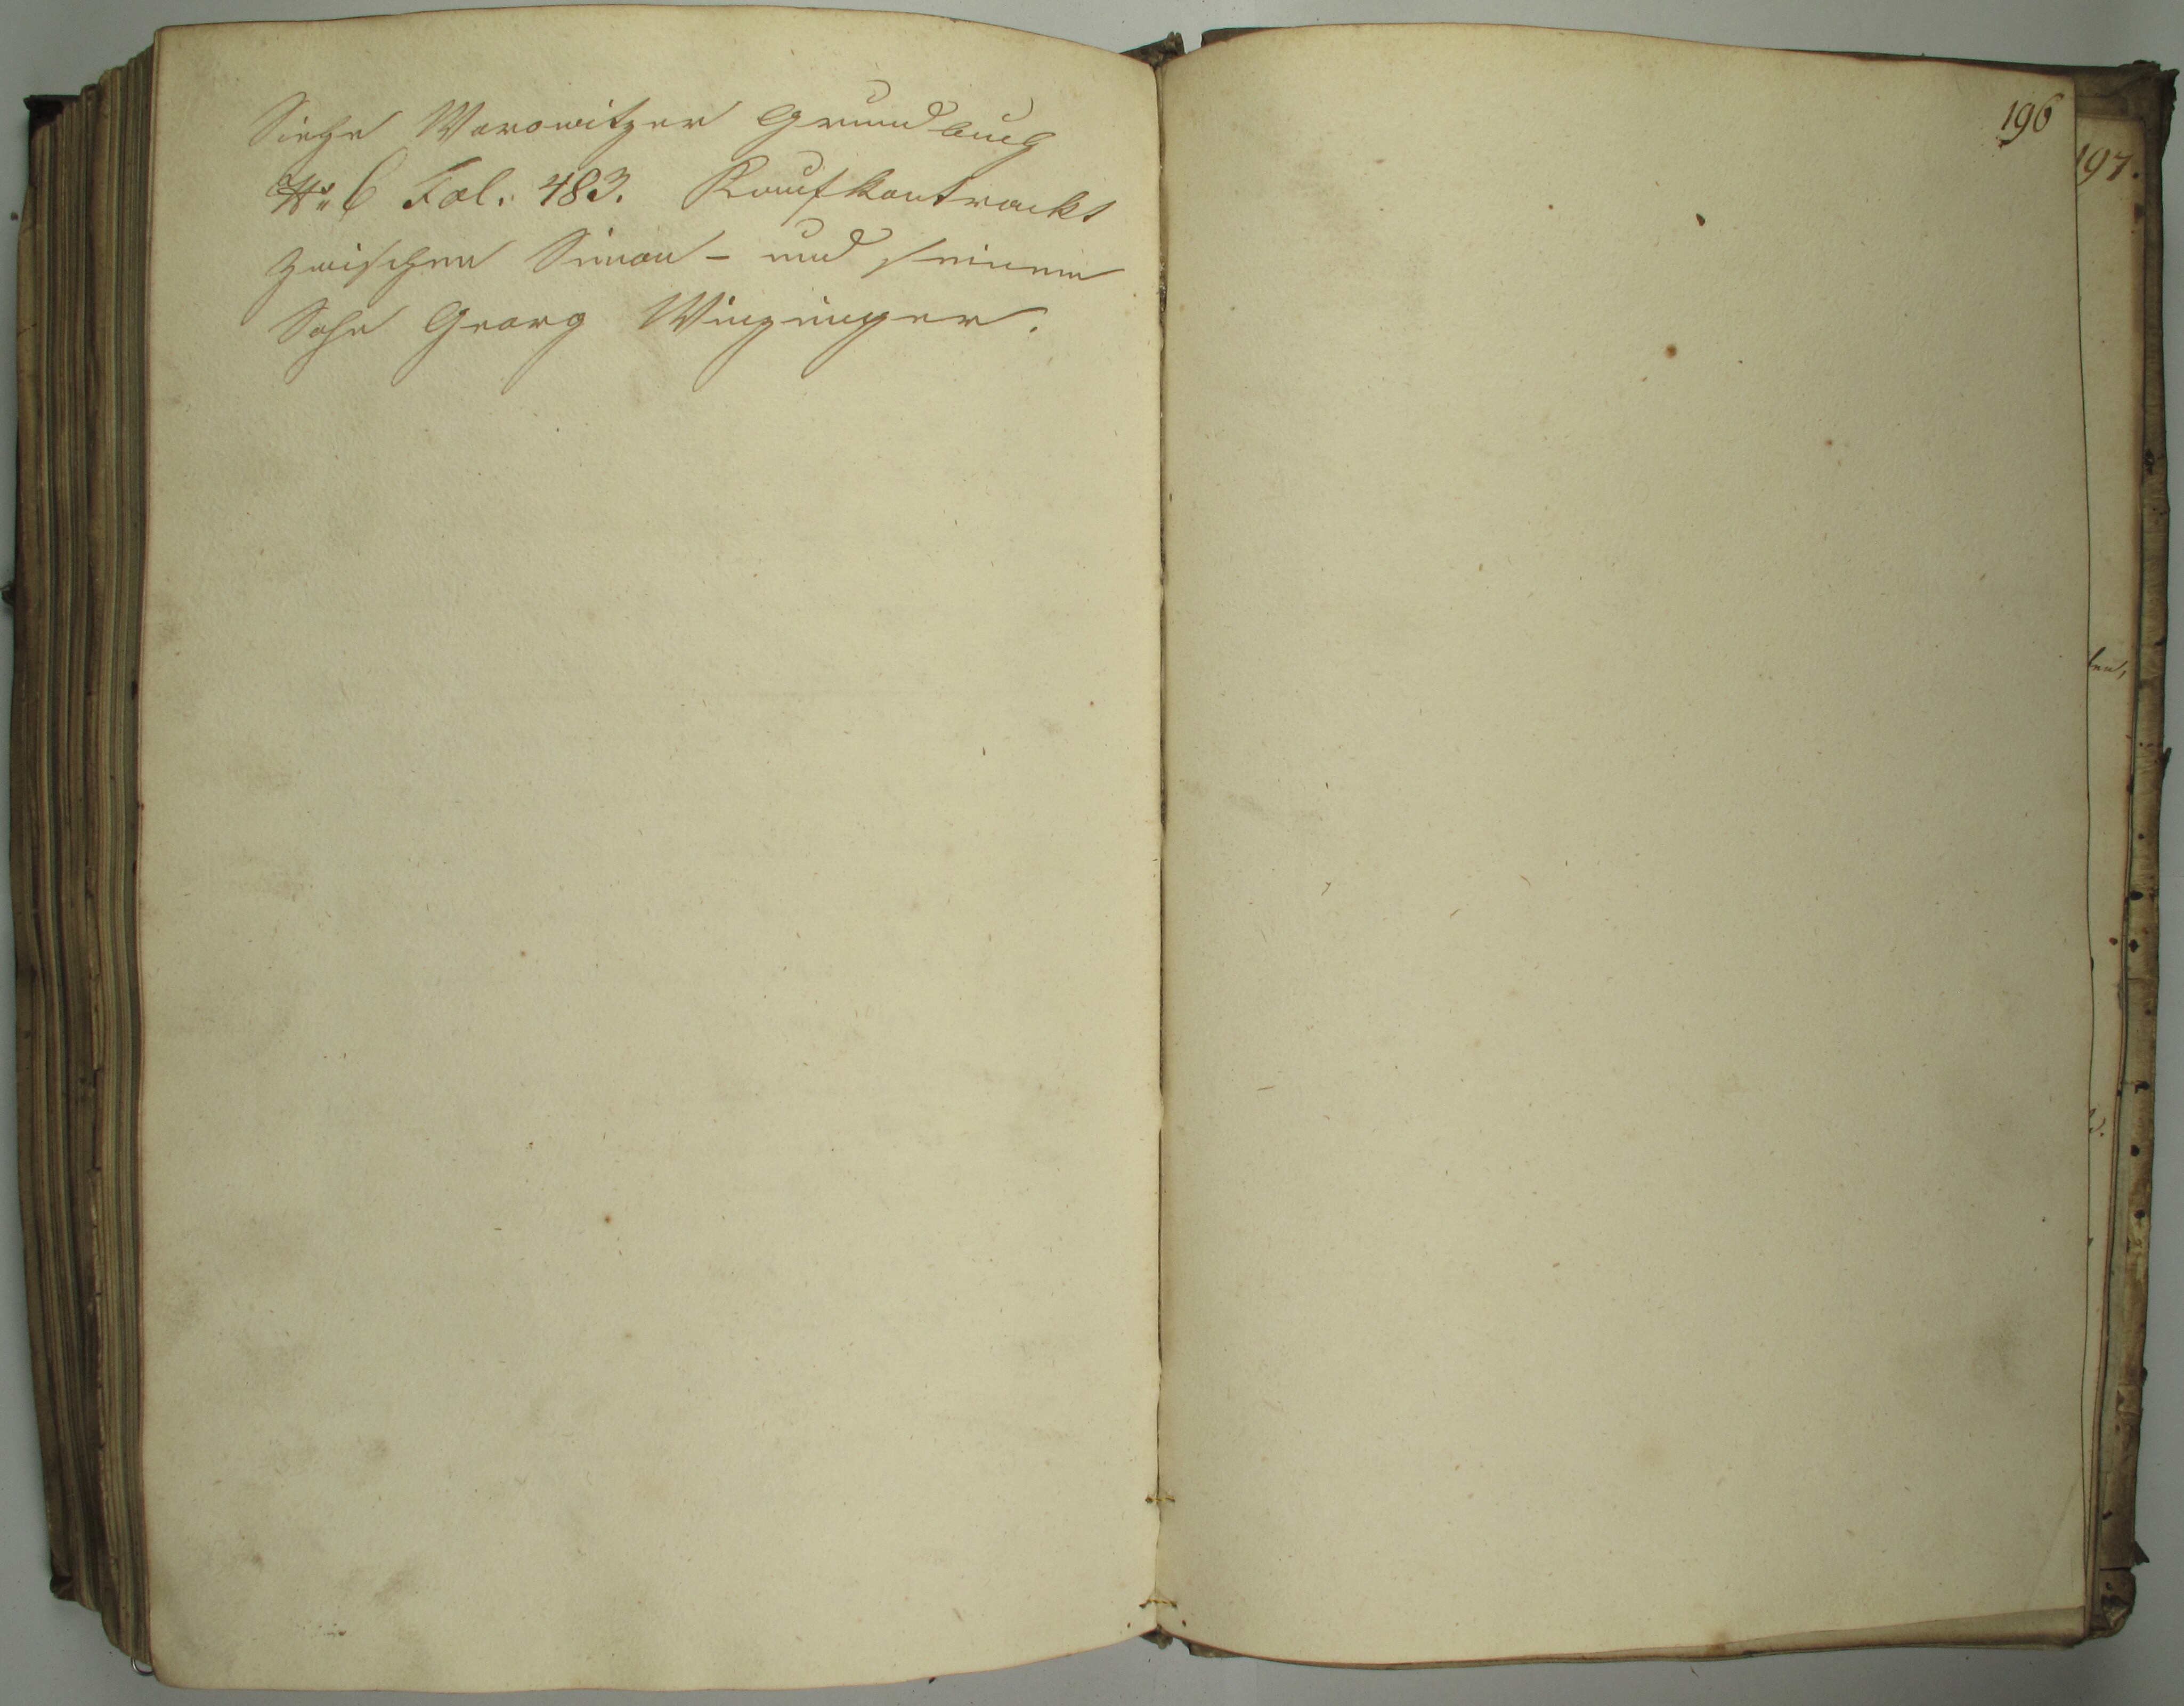 Siehe Worowitzer Grundbuch
No 6 Fol. 483. Kaufkontrackt
zwischen Simon – und seinem
Sohn Georg
196
197.